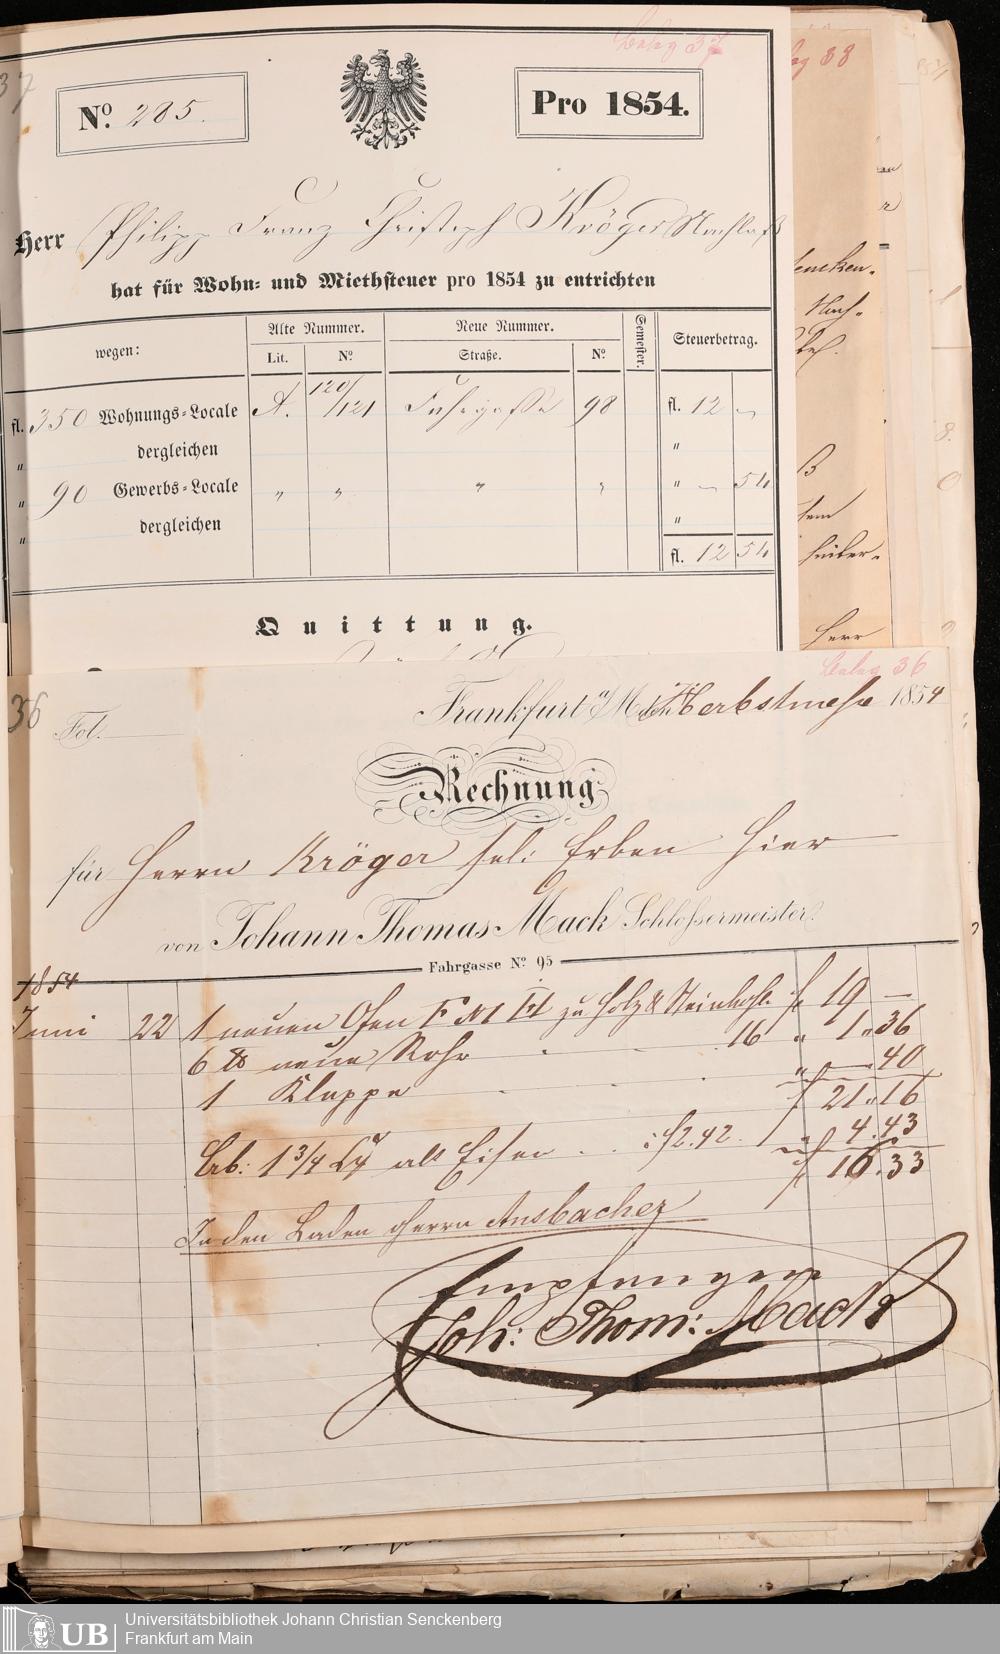 37
Belag 37
Belag 38
Nº. 285.
Pro 1854.
Herr Philipp Franz Christoph Kröger Nachlaß
hat für Wohn- und Miethsteuer pro 1854 zu entrichten
wegen: Alte Nummer. Neue Nummer. Semester. Steuerbetrag.
Lit. Nº Straße. Nº
fl. 350 Wohnungs-Locale A. 120/121 Fahrgasse 98 fl. 12 —
" dergleichen "
" 90 Gewerbs-Locale " " " " " — 54
" dergleichen "
fl. 12 54
Quittung.
36
Belag 36
Fol.
Frankfurt a/M den Herbstmesse 1854
Rechnung
für Herrn Kröger sel: Erben Hier
von Johann Thomas Mack Schlossermeister.
Fahrgasse Nº 95
1854
Juni 22 1 neuen Ofen zu Holz & Steinkohle f 19 —
6 ℔ neue Rohr 16 " 1 " 36
1 Klappe " — 40
f 21 " 16
1 3/4 alt Eisen f 2.42. " 4.43
f 16.33
In den Laden Herrn Ansbacher
Empfangen
Joh: Thom: Mack
Universitätsbibliothek Johann Christian Senckenberg
Frankfurt am Main
UB